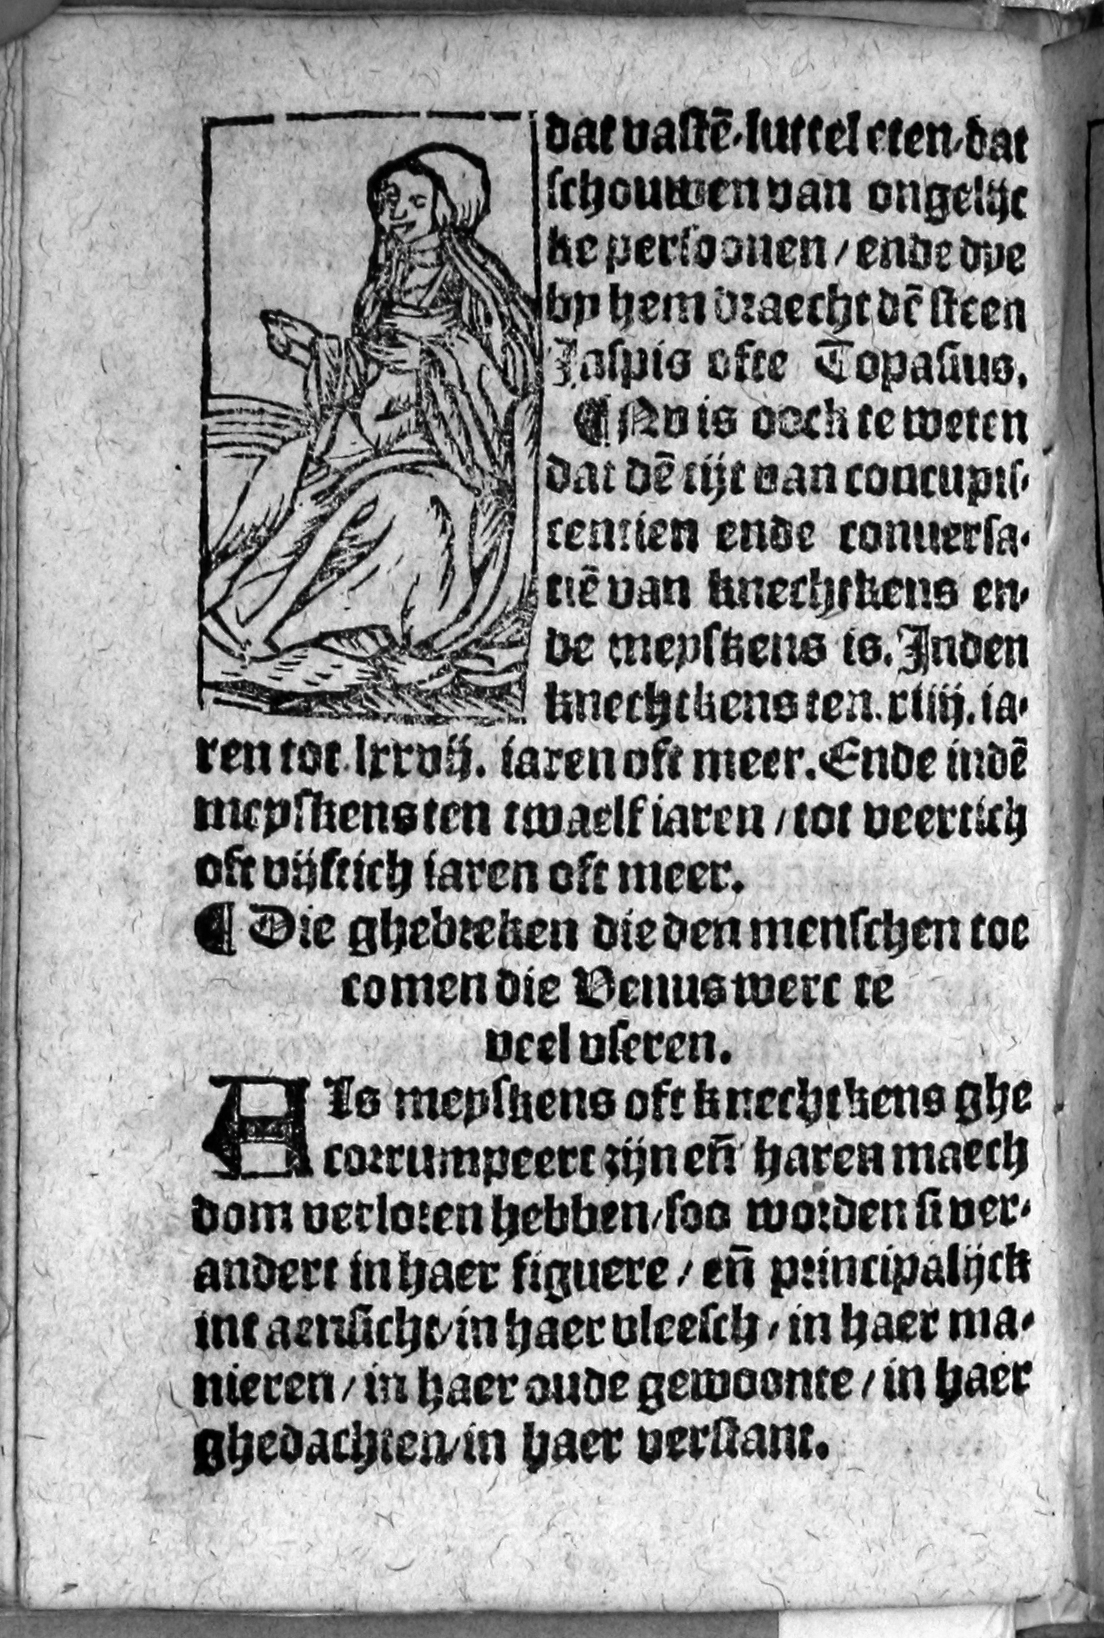 dat vastē, luttel eten, dat
schouwen van ongelijc
ke persoonen / ende dye
by hem draecht dē steen
Jaspis ofte Topasius.
¶ Nv is oock te weten
dat dē tijt van concupis-
centien ende conuersa-
tiē van knechtkens en-
de meyskens is. Inden
knechtkens ten. xiiij. ia-
ren tot. lxxvij. iaren oft meer. Ende indē
meyskens ten twaelf iaren / tot veertich
oft vijftich iaren oft meer.
¶ Die ghebreken die den menschen toe
comen die Venus werc te
veel vseren.
Als meyskens oft knechtkens ghe
corrumpeert zijn eñ haren maech
dom verloren hebben / soo worden si ver-
andert in haer figuere / eñ principalijck
int aensicht / in haer vleesch / in haer ma-
nieren / in haer oude gewoonte / in haer
ghedachten / in haer verstant.